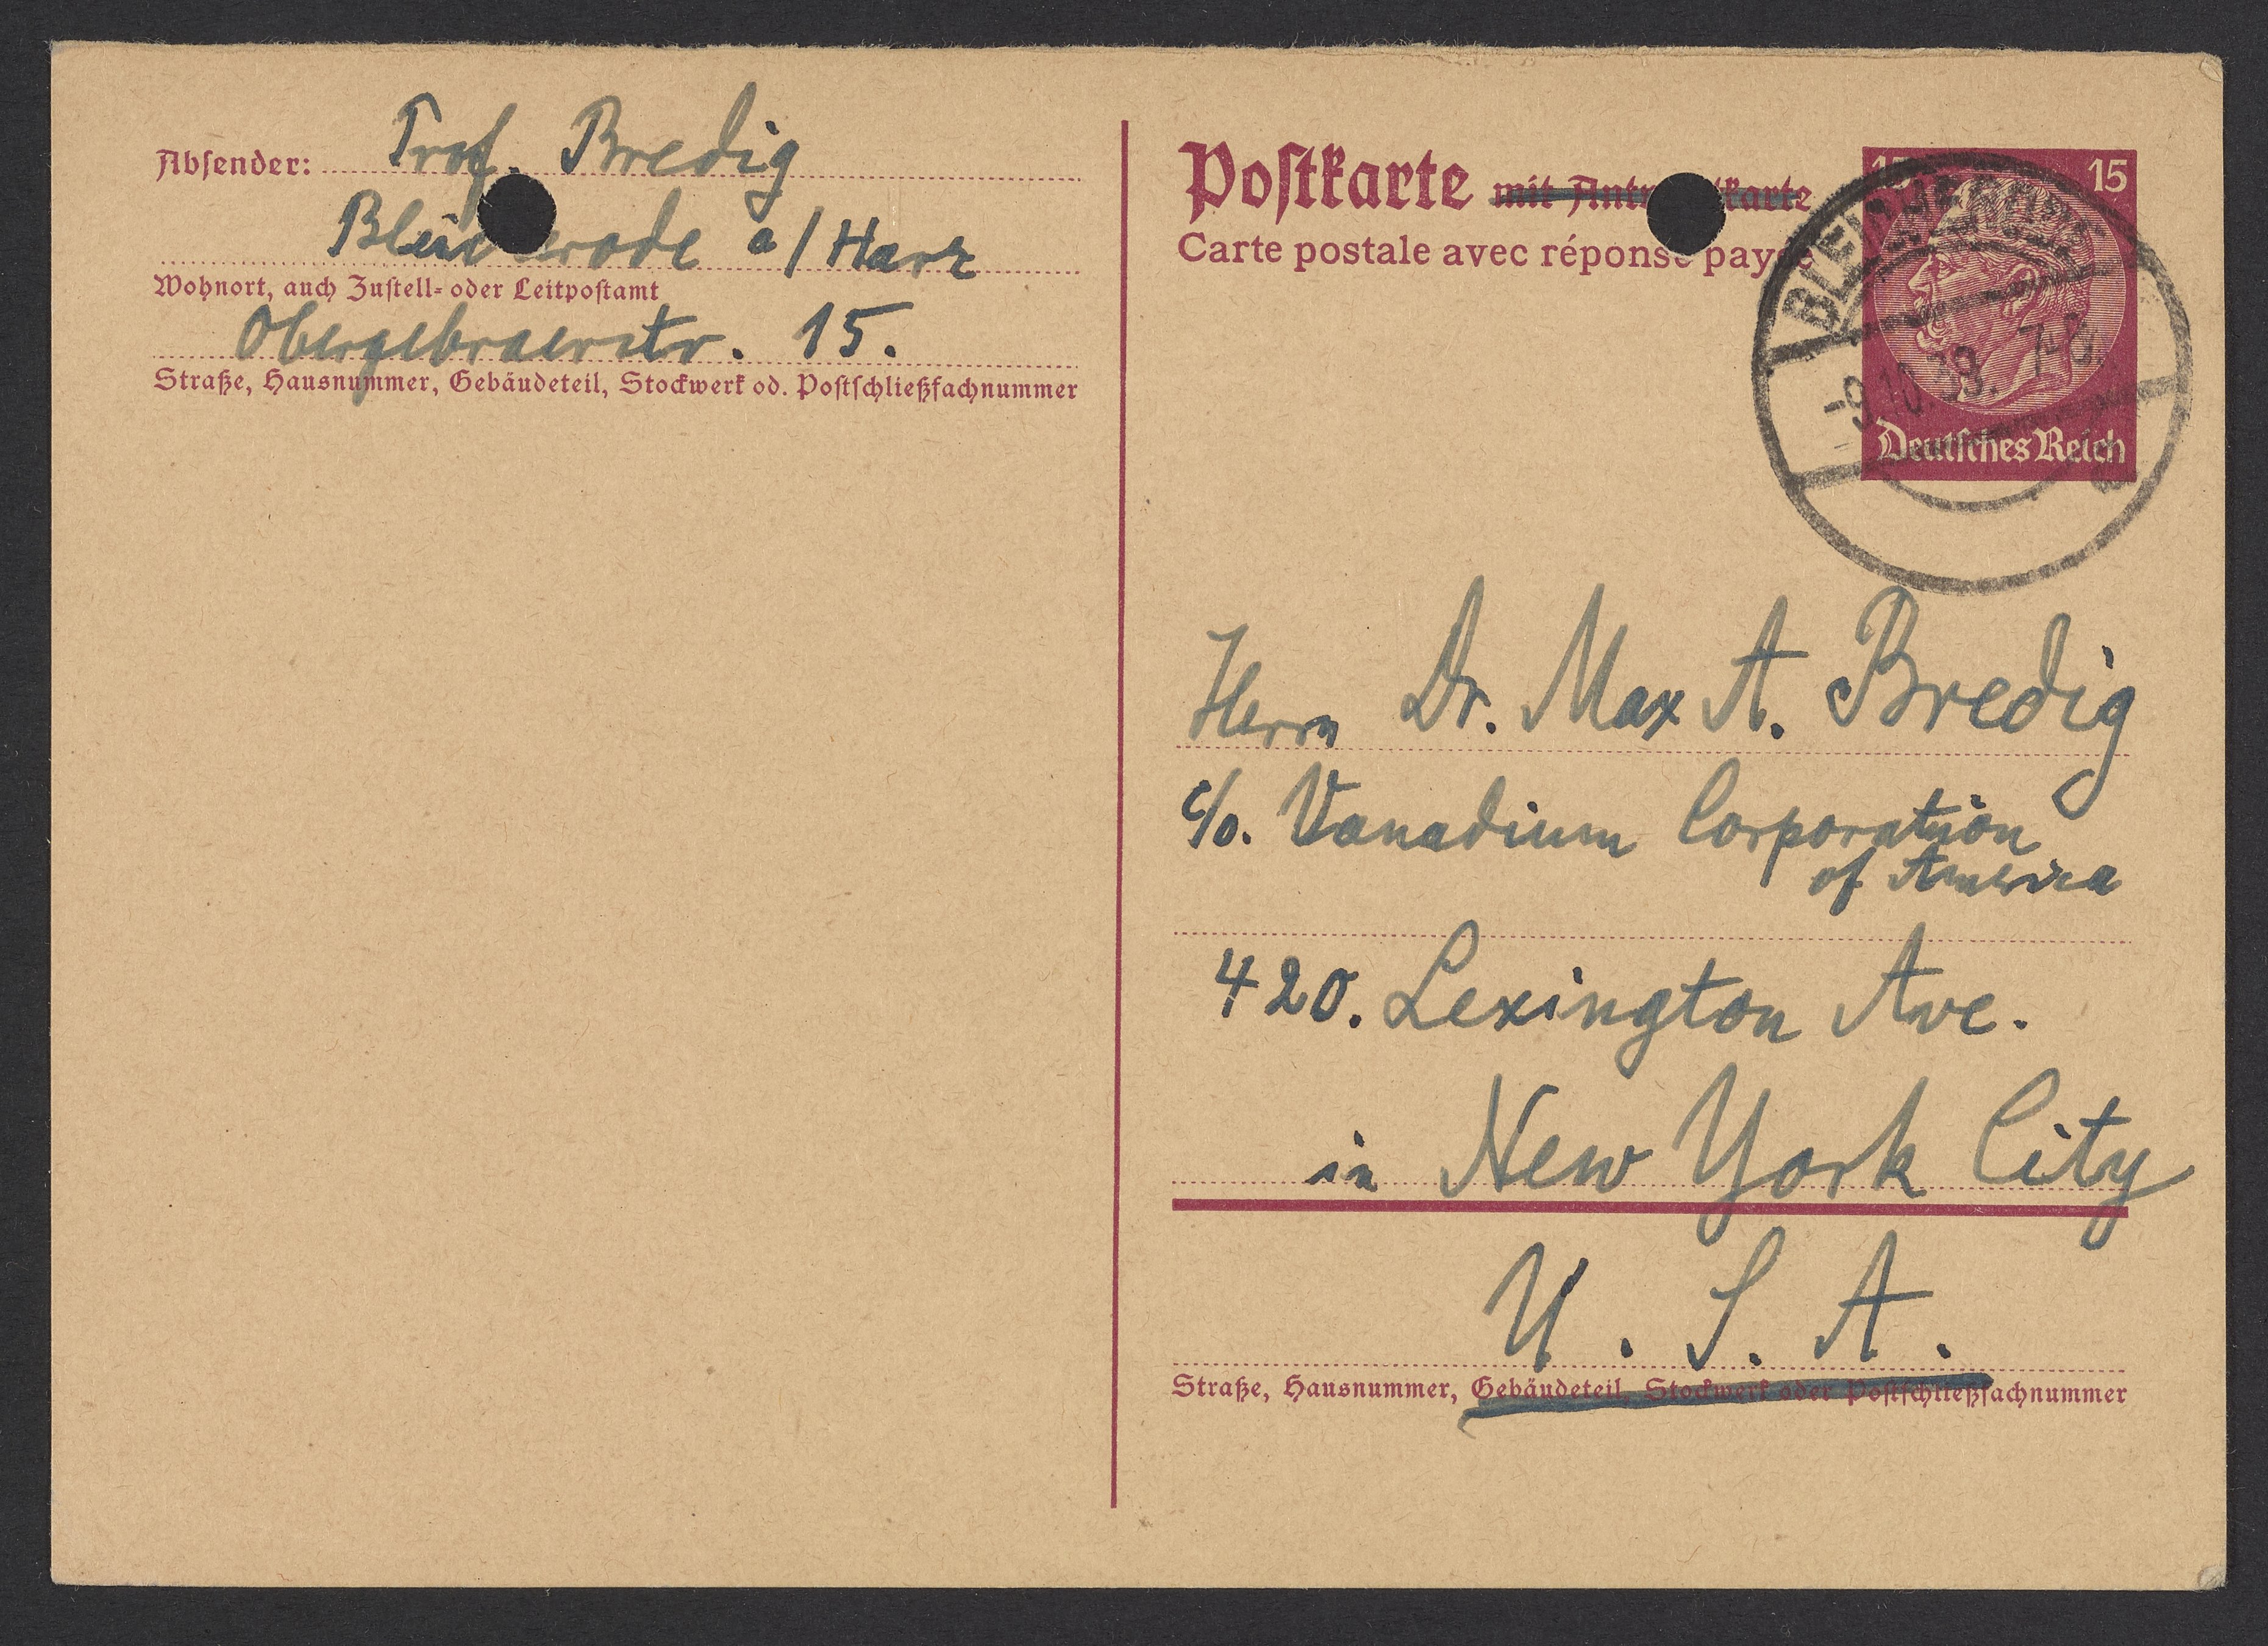 Absender: Prof. Bredig
Bleicherode a/Harz
Wohnort, auch Zustell- oder Leitpostamt
Obergebraerstr. 15.
Straße, Hausnummer, Gebäudeteil, Stockwerk od. Postschließfachnummer
Postkarte mit Antwortkarte
Carte postale avec réponse payée
15 15
BLEICHERODE
-9.10.39. 7-8
Deutsches Reich
Herrn Dr. Max A. Bredig
c/o. Vanadium Corporation
of America
420. Lexington Ave.
in New York City
U. S. A.
Straße, Hausnummer, Gebäudeteil, Stockwerk oder Postschließfachnummer